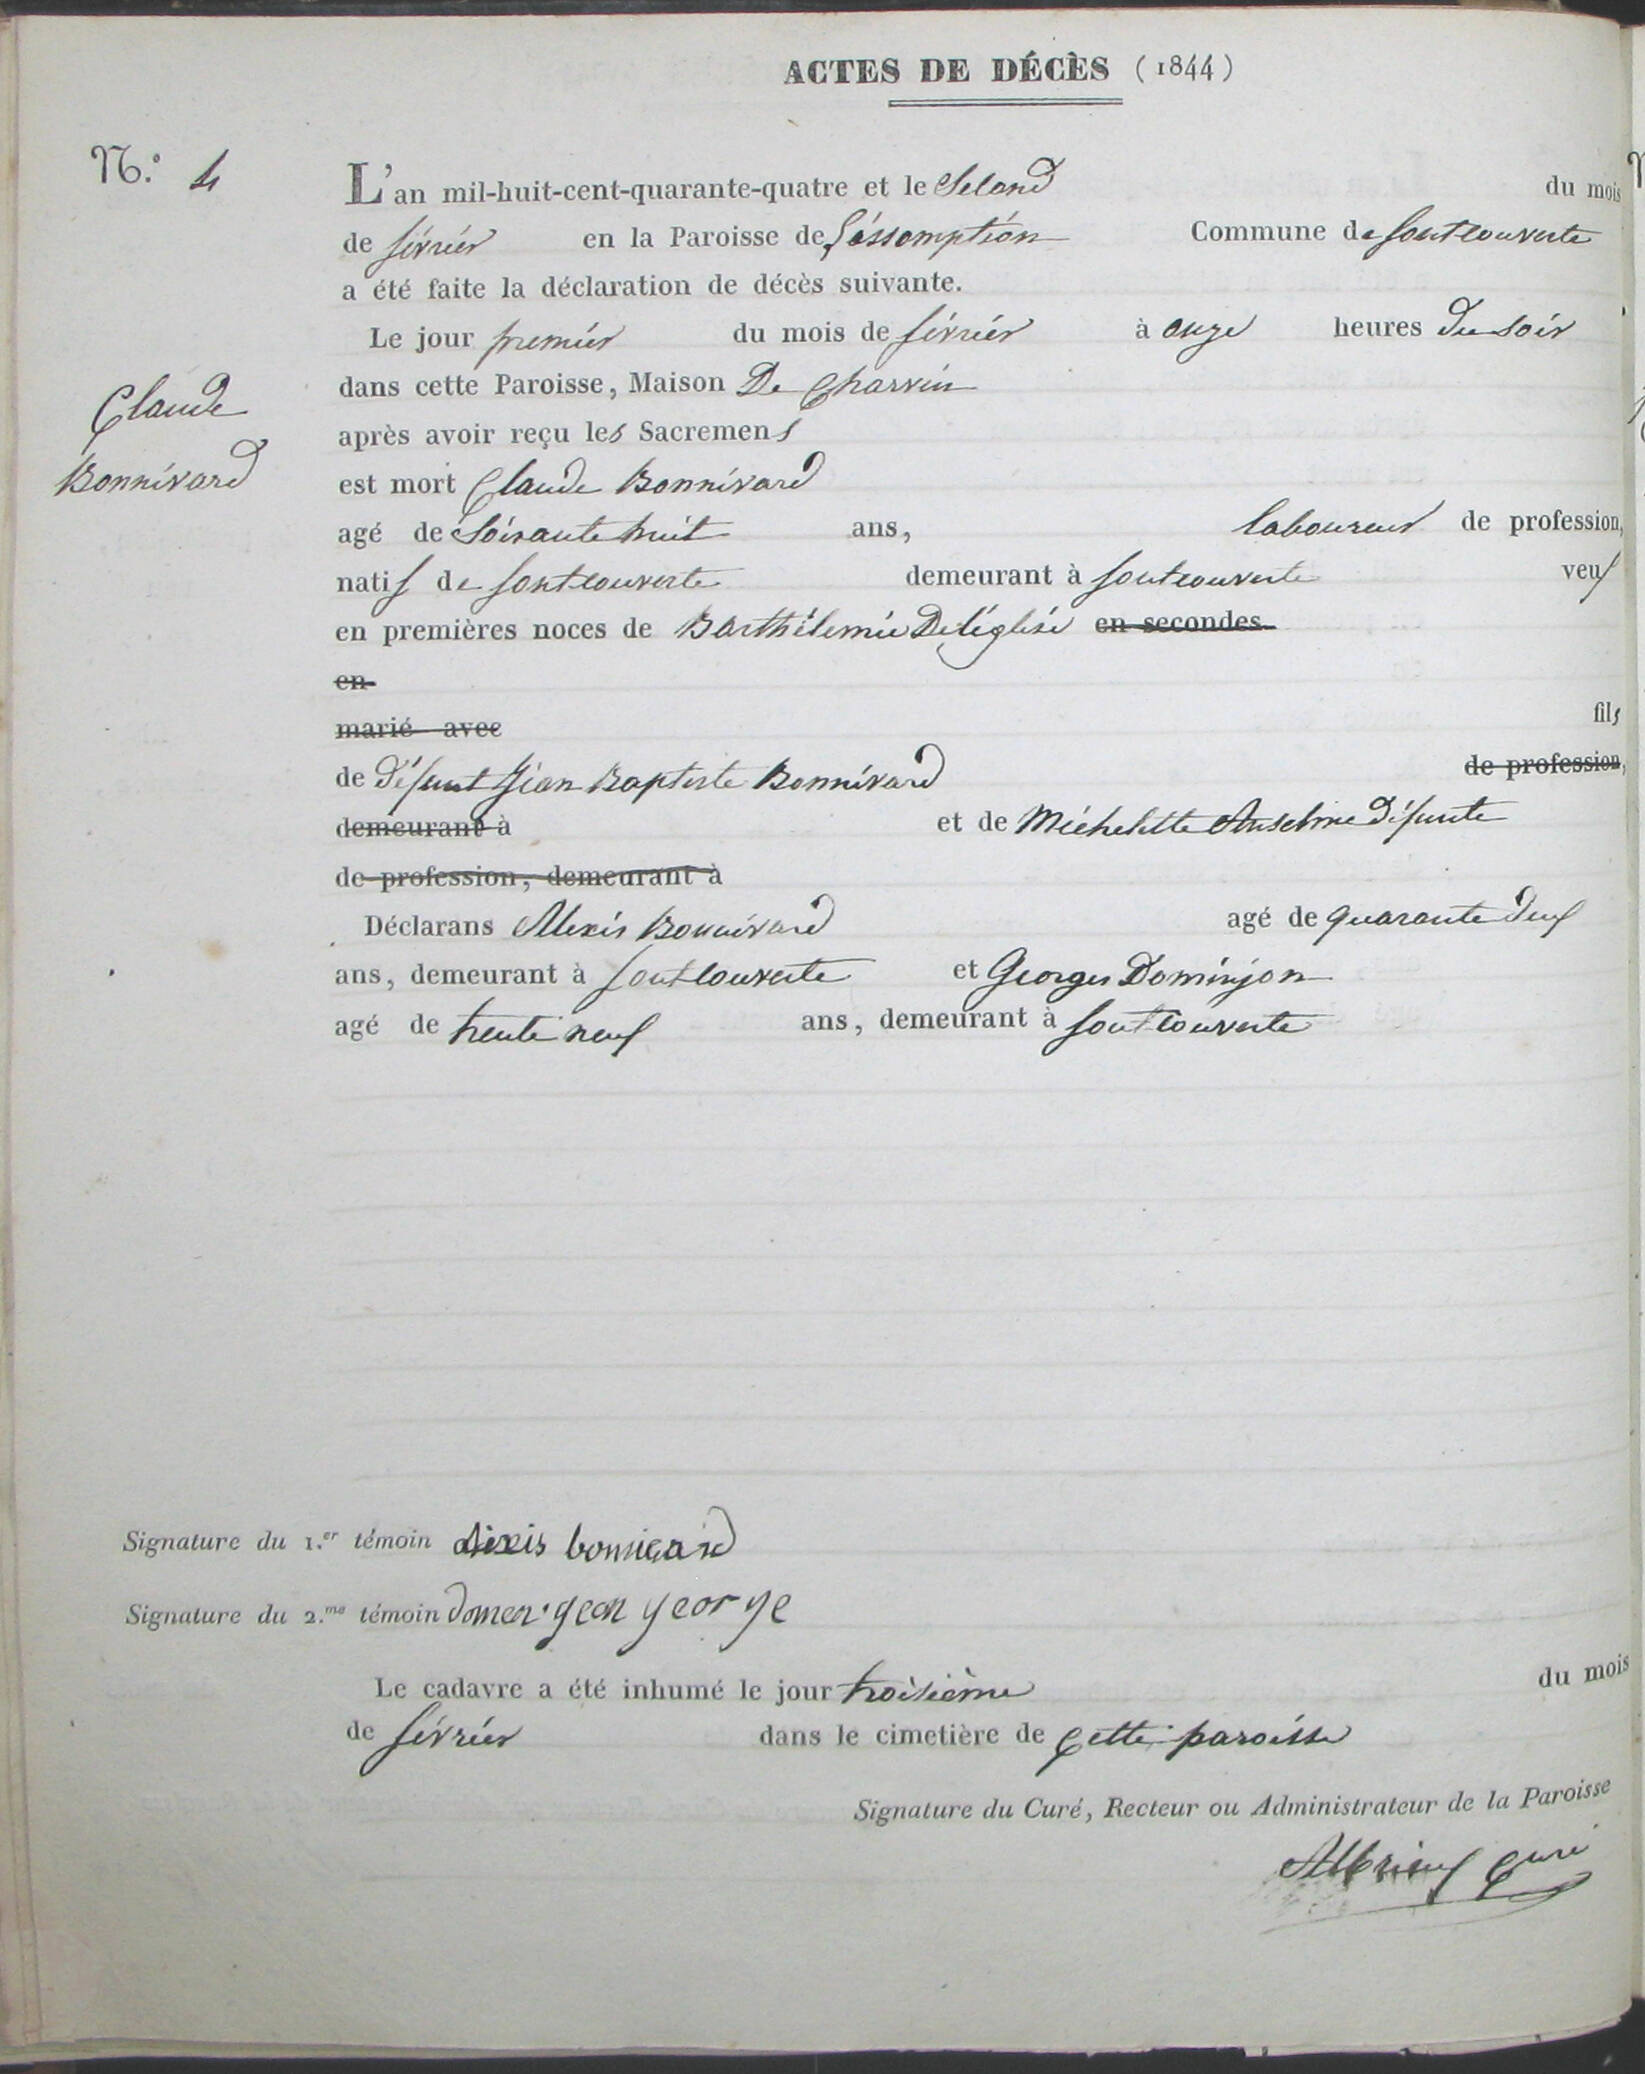 ACTES DE DÉCÈS (1844)
N.º 4
L'an mil-huit-cent-quarante-quatre et le second du mois
de février en la Paroisse de L'assomption Commune de fontcouverte
a été faite la déclaration de décès suivante.
Le jour premier du mois de février à onze heures du soir
dans cette Paroisse, Maison De Charvin
après avoir reçu les Sacremens
Claude
Bonnivard
est mort Claude Bonnivard
agé de soixante huit ans, laboureur de profession,
natif de fontcouverte demeurant à fontcouverte veuf
en premières noces de Barthélemie Deléglise en secondes
en
marié avec fils
de défunt Jean Baptiste Bonnivard de profession,
demeurant à et de Michelette Anselme défunte
de profession, demeurant à
Déclarans Alexis Bonnivard agé de quarante deux
ans, demeurant à fontcouverte et Georges Dominjon
agé de trente neuf ans, demeurant à fontcouverte
Signature du 1.er témoin alexis bonnivard
Signature du 2.me témoin domen'gean george
Le cadavre a été inhumé le jour troisième du mois
de février dans le cimetière de cette paroisse
Signature du Curé, Recteur ou Administrateur de la Paroisse
Albrieux curé